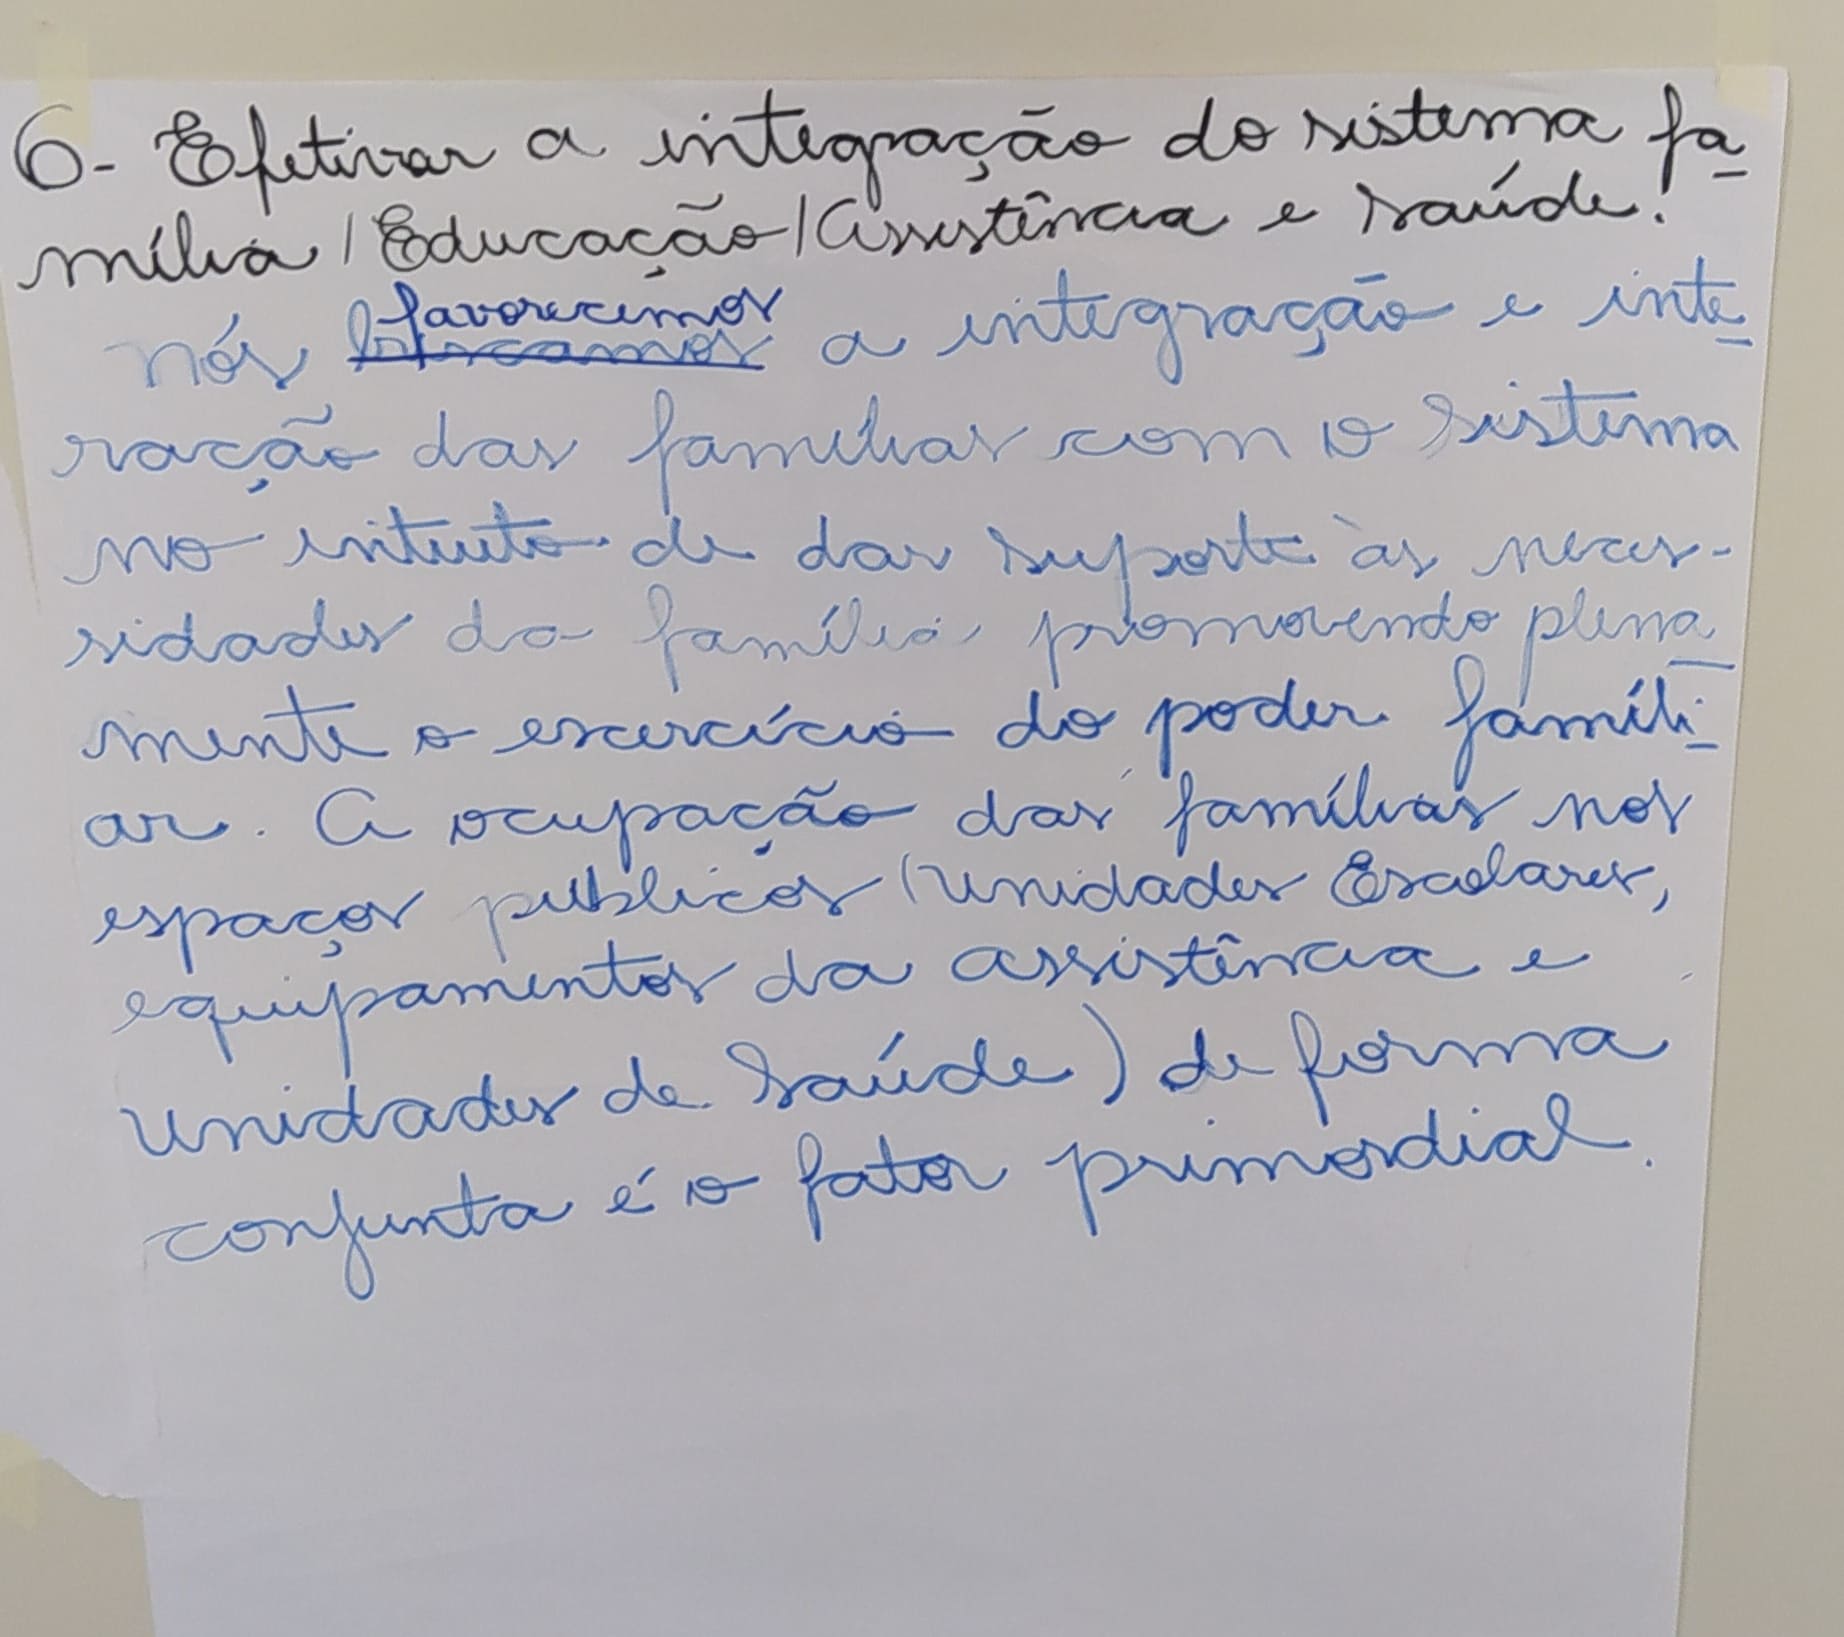 6- Efetivar a integração do sistema fa-
mília / Educação / Assistência e saúde.
favorecemos
nós buscamos a integração e inte-
ração das famílias com o sistema
no intuito de dar suporte às neces-
sidades da família promovendo plena
mente o exercício do poder famíli-
ar. A ocupação das famílias nos
espaços públicos (unidades Escolares,
equipamentos da assistência e
unidades de Saúde) de forma
conjunta é o fator primordial.